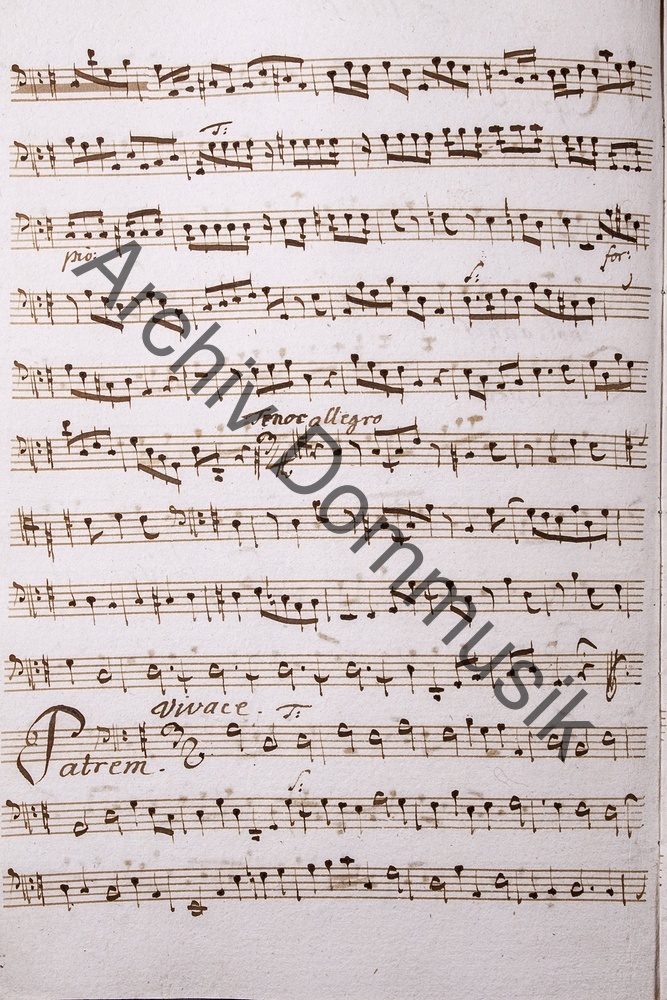 T:
pio:
for:
S:
Tenor allegro
Vivace. T:
Patrem.
S:
Archiv Dommusik